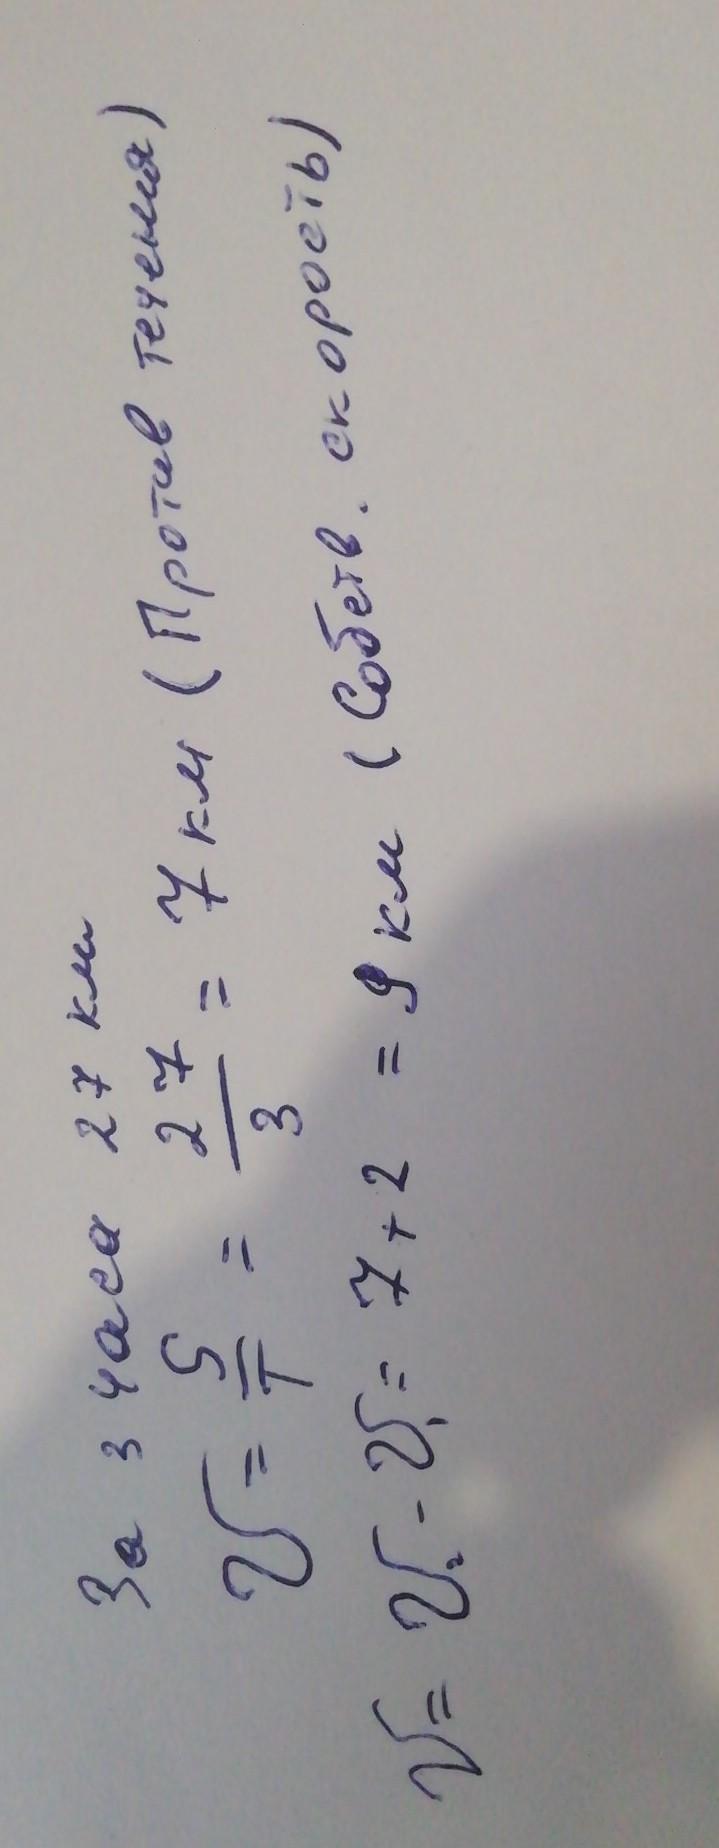 За 3 часа 27 км
V = S/T = 27/3 = 7 км (Против течения)
V = V₂ - V₁ = 7 + 2 = 9 км (Собств. скорость)